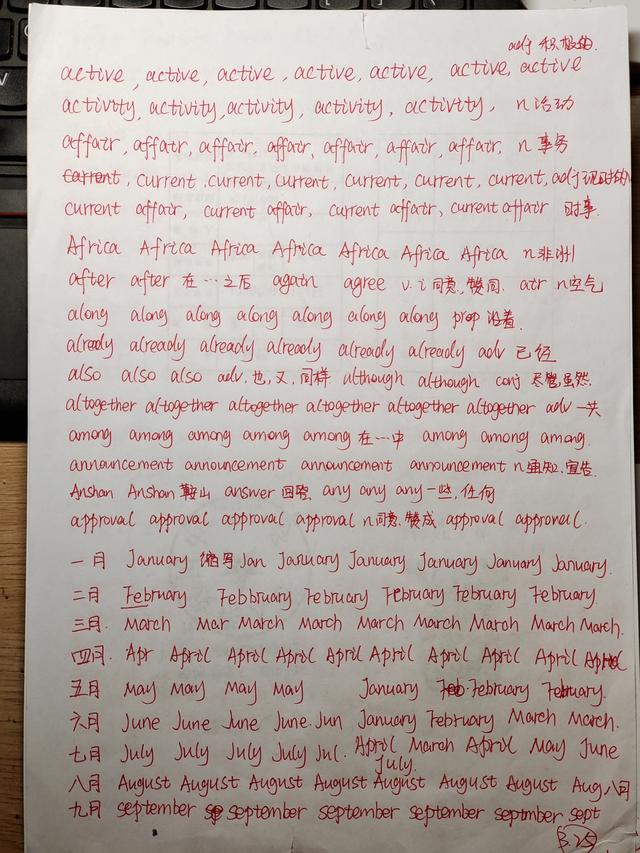 adj 积极的.
active, active, active, active, active, active, active
activity, activity, activity, activity, activity, n 活动
affair, affair, affair, affair, affair, affair, affair. n 事务
current, current, current, current, current, current, current, adj 现时的
current affair, current affair, current affair, current affair 时事.
Africa Africa Africa Africa Africa Africa Africa n 非洲
after after 在…之后 again agree v.i 同意.赞同. air n 空气
along along along along along along along prep 沿着.
already already already already already already adv 已经
also also also adv.也,又.同样 although although conj 尽管,虽然.
altogether altogether altogether altogether altogether altogether adv 一共
among among among among among 在…中 among among among.
announcement announcement announcement announcement n 通知.宣告.
Anshan Anshan 鞍山 answer 回答. any any any 一些,任何
approval approval approval approval n 同意.赞成 approval approval.
一月 January 缩写 Jan January January January January January.
二月 February Febbruary February February February February.
三月. March Mar March March March March March March.
四月. Apr April April April April April April April April April
五月 May May May May January Feb February February.
六月 June June June June. Jun January February March March.
七月 July July July July Jul. April March April May June
July.
八月 August August August August August August August Aug 八月
九月 september se september september september septmber sept
3.25